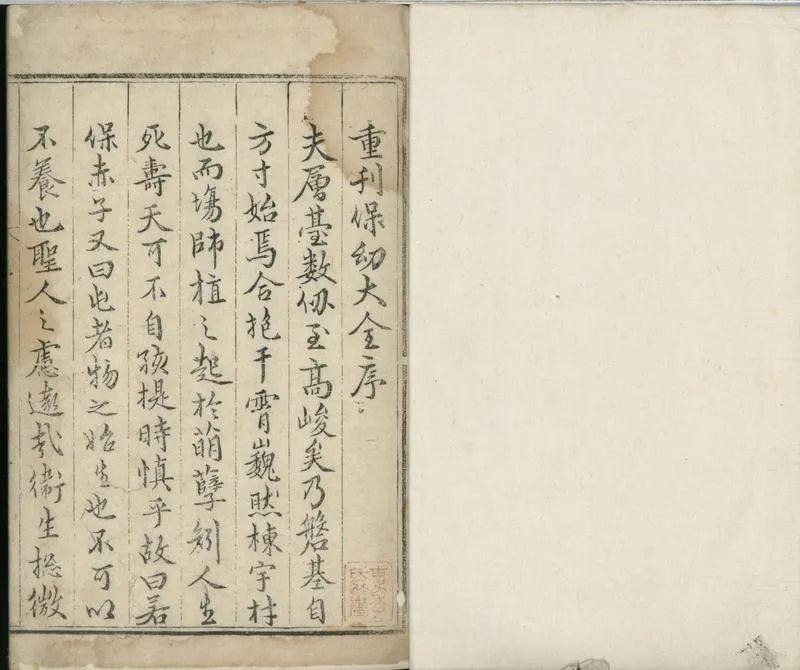 重刊保幼大全序
夫層臺数仭至高峻矣乃磐基自
方寸始焉合抱干霄巍然棟宇材
也而場師植之起於萌孽矧人生
死壽夭可不自孩提時慎乎故曰若
保赤子又曰屯者物之始生也不可以
不養也聖人之慮遠哉衛生揔微